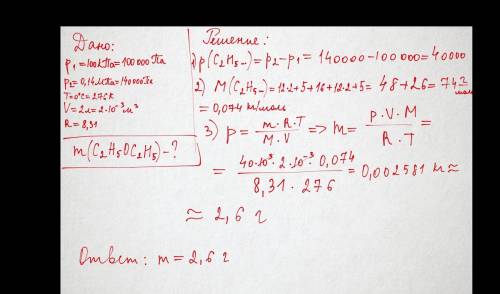 Дано:
p₁ = 100 кПа = 100 000 Па
p₂ = 0,14 МПа = 140000 Па
T = 0°C = 276 K
V = 2 л = 2·10⁻³ м³
R = 8,31
m(C₂H₅OC₂H₅) - ?
Решение:
1) p(C₂H₅-) = p₂ - p₁ = 140000 - 100 000 = 40000
2) M(C₂H₅-) = 12·2+5+16+12·2+5 = 48+26 = 74 г/моль
= 0,074 кг/моль
3) p = m·R·T / M·V => m = p·V·M / R·T =
= 40·10³·2·10⁻³·0,074 / 8,31·276 = 0,002581 кг ≈
≈ 2,6 г
Ответ: m = 2,6 г